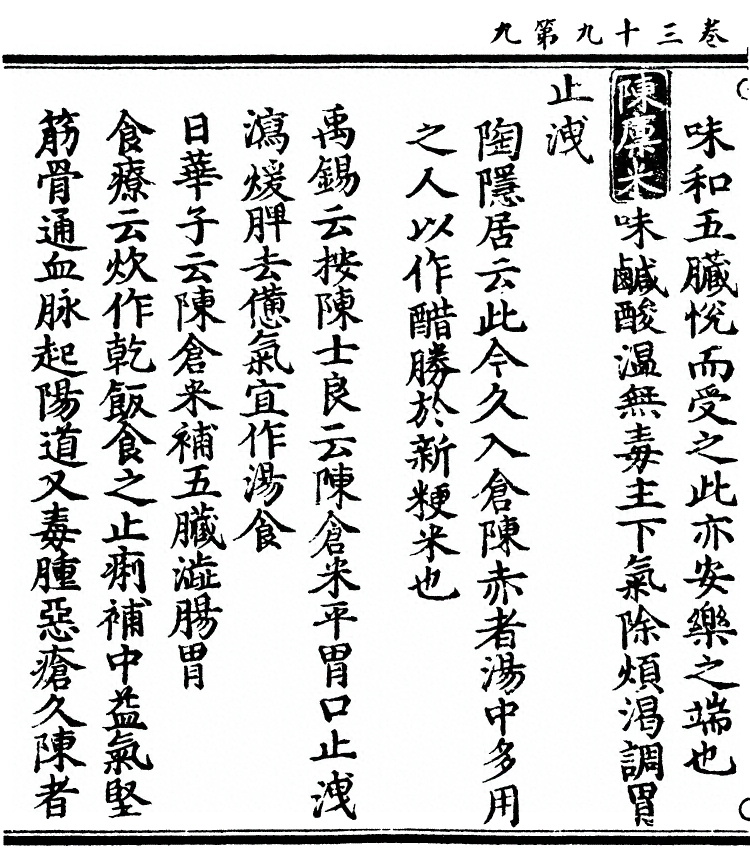 卷三十九第九
味和五臟悅而受之此亦安樂之端也
陳廩米味鹹酸温無毒主下氣除煩渴調胃
止洩
陶隱居云此今久入倉陳赤者湯中多用
之人以作醋勝於新粳米也
禹錫云按陳士良云陳倉米平胃口止洩
瀉煖脾去憊氣宜作湯食
日華子云陳倉米補五臟澁腸胃
食療云炊作乾飯食之止痢補中益氣堅
筋骨通血脉起陽道又毒腫惡瘡久陳者